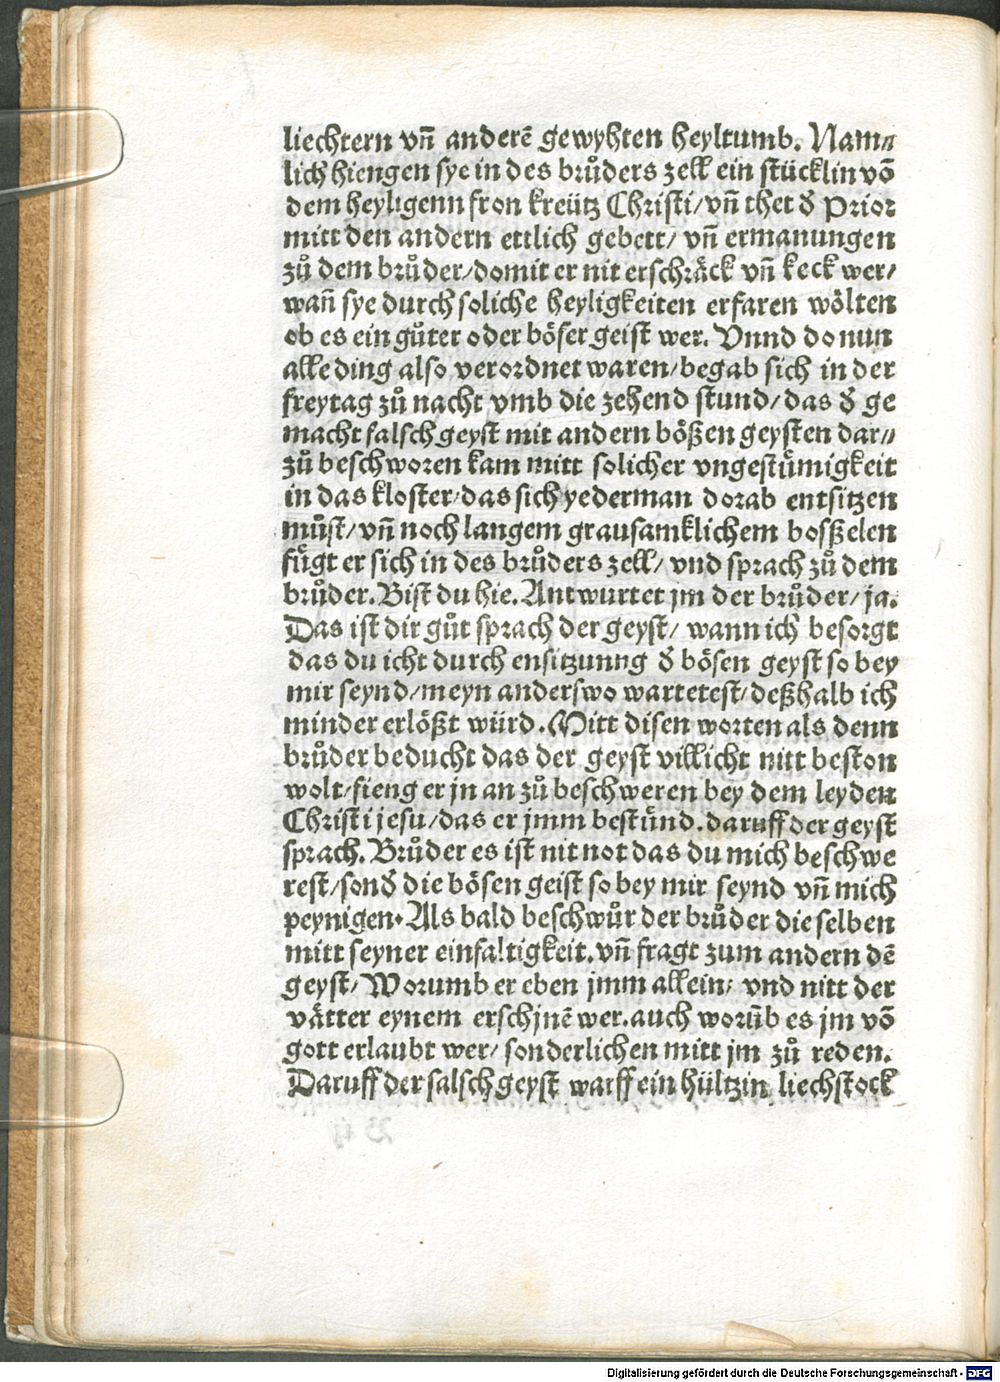 liechtern vñ anderē gewyhten heyltumb. Nam⸗
lich hiengen sye in des brůders zell ein stücklin vō
dem heyligenn fron kreütz Christi/vñ thet d̕ Prior
mitt den andern ettlich gebett/ vñ ermanungen
zů dem brůder/domit er nit erschräck vñ keck wer/
wañ sye durch soliche heyligkeiten erfaren wölten
ob es ein gůter oder böser geist wer. Vnnd do nun
alle ding also verordnet waren/begab sich in der
freytag zů nacht vmb die zehend stund/das d̕ ge
macht falsch geyst mit andern bößen geysten dar⸗
zů beschworen kam mitt solicher vngestümigkeit
in das kloster/das sich yederman dorab entsitzen
můst/vñ noch langem grausamklichem bosßelen
fügt er sich in des brůders zell/ vnd sprach zů dem
brůder. Bist du hie. Antwurtet jm der brůder/ja.
Das ist dir gůt sprach der geyst/ wann ich besorgt
das du icht durch ensitzunng d̕ bösen geyst so bey
mir seynd/meyn anderswo wartetest/deßhalb ich
minder erlößt würd. Mitt disen worten als denn
brůder beducht das der geyst villicht nitt beston
wolt/fieng er jn an zů beschweren bey dem leyden
Christi jesu/das er jmm bestünd. daruff der geyst
sprach. Brůder es ist nit not das du mich beschwe
rest/sond̕ die bösen geist so bey mir seynd vñ mich
peynigen. Als bald beschwůr der brůder die selben
mitt seyner einfaltigkeit. vñ fragt zum andern dē
geyst/ Worumb er eben jmm allein/ vnd nitt der
vätter eynem erschjnē wer. auch worūb es jm vō
gott erlaubt wer/ sonderlichen mitt jm zů reden.
Daruff der falsch geyst warff ein hültzin liechstock
Digitalisierung gefördert durch die Deutsche Forschungsgemeinschaft - DFG